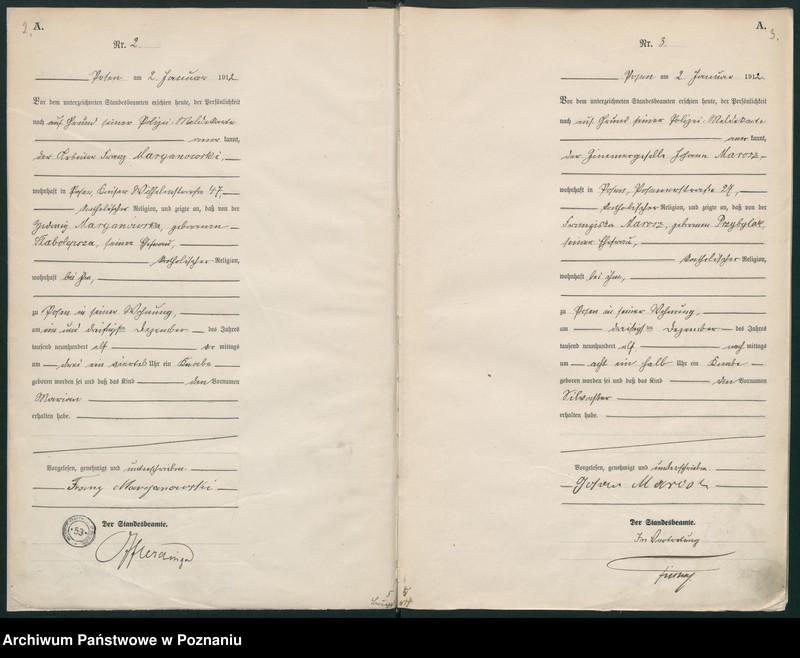 2. A.
Nr. 2
Posen am 2. Januar 1912
Vor dem unterzeichneten Standesbeamten erschien heute, der Persönlichkeit
nach auf Grund seiner Polizei-Meldekarte
anerkannt,
der Arbeiter Franz Marganowski,
wohnhaft in Posen, Kaiser Wilhelmstraße 47,
katholischer Religion, und zeigte an, daß von der
Hedwig Marganowska, geborenen
seiner Ehefrau,
katholischer Religion,
wohnhaft bei ihm,
zu Posen in seiner Wohnung,
am ein und dreißigsten Dezember des Jahres
tausend neunhundert elf vor mittags
um drei ein viertel Uhr ein Knabe
geboren worden sei und daß das Kind den Vornamen
Marian
erhalten habe.
Vorgelesen, genehmigt und unterschrieben.
Franz Marganowski
Der Standesbeamte.
53
A. 3.
Nr. 3.
Posen am 2. Januar 1912
Vor dem unterzeichneten Standesbeamten erschien heute, der Persönlichkeit
nach auf Grund seiner Polizei-Meldekarte
anerkannt,
der Zimmergeselle Johann Marosz,
wohnhaft in Posen, Posenerstraße 27,
katholischer Religion, und zeigte an, daß von der
Franziska Marosz, geborenen Przybylak,
seiner Ehefrau,
katholischer Religion,
wohnhaft bei ihm,
zu Posen in seiner Wohnung,
am dreißigsten Dezember des Jahres
tausend neunhundert elf nach mittags
um acht ein halb Uhr ein Knabe
geboren worden sei und daß das Kind den Vornamen
Silvester
erhalten habe.
Vorgelesen, genehmigt und unterschrieben.
Der Standesbeamte.
In Vertretung
Archiwum Państwowe w Poznaniu